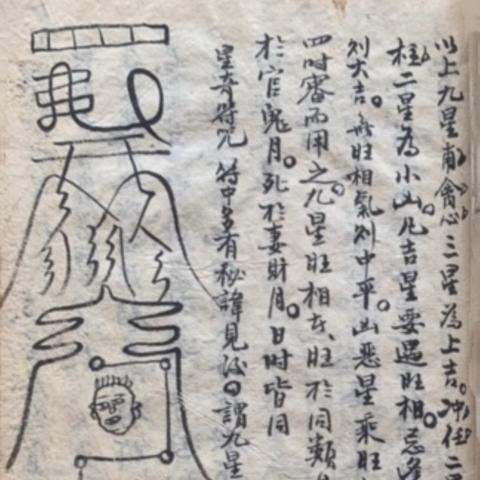 以上九星輔禽心三星為上吉。沖任二
柱二星為小凶。凡吉星要遇旺相。忌逢
則大吉。無旺相氣則中平。凶惡星乘旺
四時審而用之。九星旺相在、旺於同類
於官鬼月。死於妻財月。日時皆同
星奇符咒 符中多有秘諱見后。謂九星